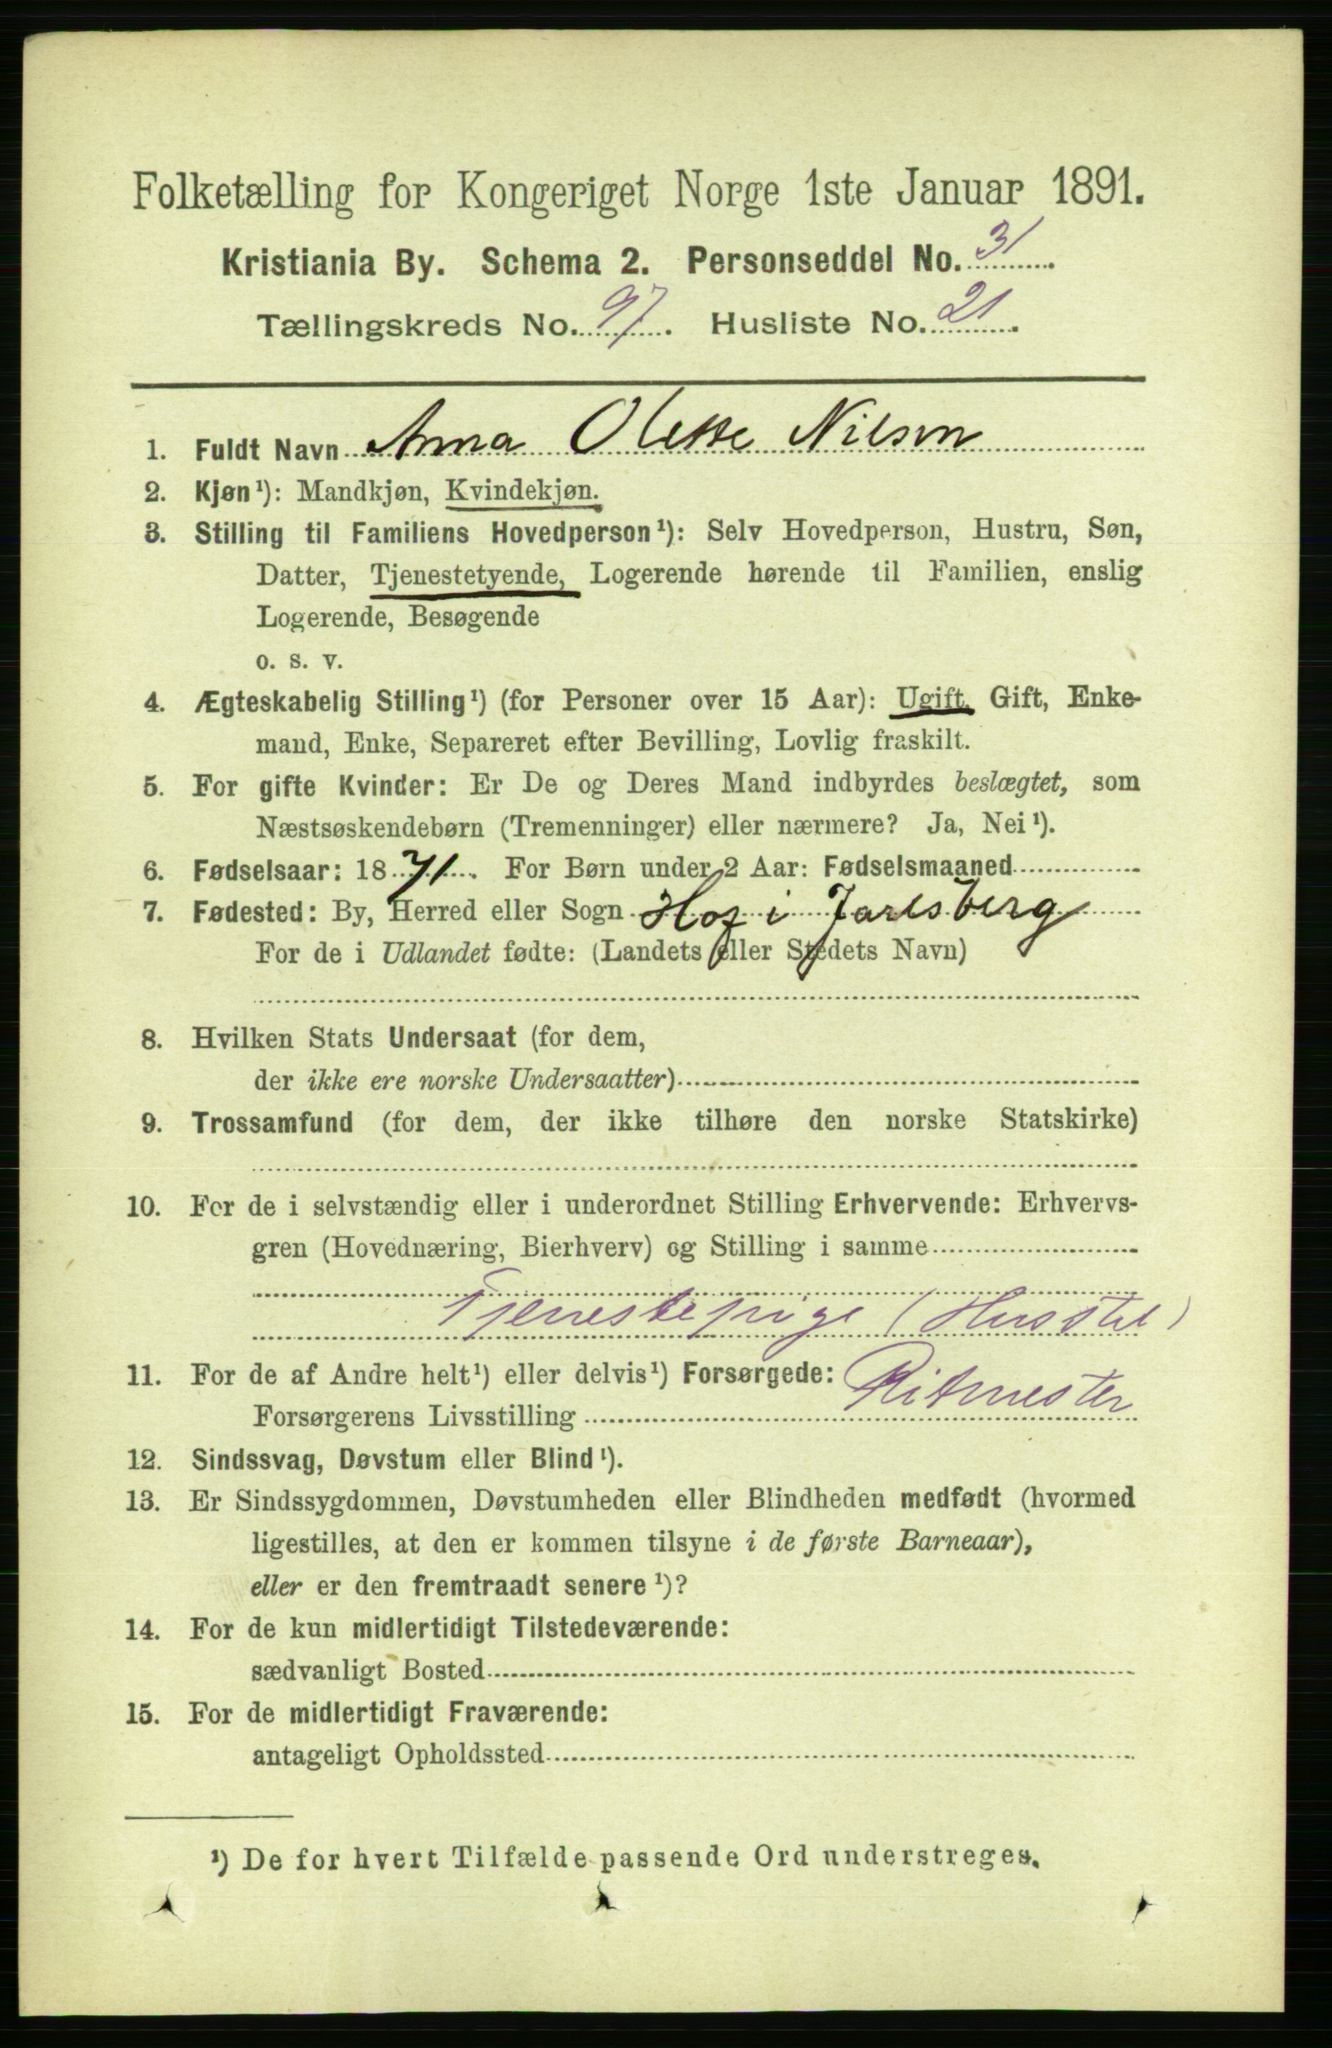 Folketælling for Kongeriget Norge 1ste Januar 1891.
Kristiania By. Schema 2. Personseddel No. 31
Tællingskreds No. 97. Husliste No. 21.
1. Fuldt Navn Anna Olette Nilsen
2. Kjøn¹): Mandkjøn, Kvindekjøn.
3. Stilling til Familiens Hovedperson¹): Selv Hovedperson, Hustru, Søn,
Datter, Tjenestetyende, Logerende hørende til Familien, enslig
Logerende, Besøgende
o. s. v.
4. Ægteskabelig Stilling¹) (for Personer over 15 Aar): Ugift, Gift, Enke-
mand, Enke, Separeret efter Bevilling, Lovlig fraskilt.
5. For gifte Kvinder: Er De og Deres Mand indbyrdes beslægtet, som
Næstsøskendebørn (Tremenninger) eller nærmere? Ja, Nei¹).
6. Fødselsaar: 1871. For Børn under 2 Aar: Fødselsmaaned
7. Fødested: By, Herred eller Sogn Hof i Jarlsberg
For de i Udlandet fødte: (Landets eller Stedets Navn)
8. Hvilken Stats Undersaat (for dem,
der ikke ere norske Undersaatter)
9. Trossamfund (for dem, der ikke tilhøre den norske Statskirke)
10. For de i selvstændig eller i underordnet Stilling Erhvervende: Erhvervs-
gren (Hovednæring, Bierhverv) og Stilling i samme
Tjenestepige (Husstel)
11. For de af Andre helt¹) eller delvis¹) Forsørgede:
Forsørgerens Livsstilling Ritmester
12. Sindssvag, Døvstum eller Blind¹).
13. Er Sindssygdommen, Døvstumheden eller Blindheden medfødt (hvormed
ligestilles, at den er kommen tilsyne i de første Barneaar),
eller er den fremtraadt senere¹)?
14. For de kun midlertidigt Tilstedeværende:
sædvanligt Bosted
15. For de midlertidigt Fraværende:
antageligt Opholdssted
¹) De for hvert Tilfælde passende Ord understreges.